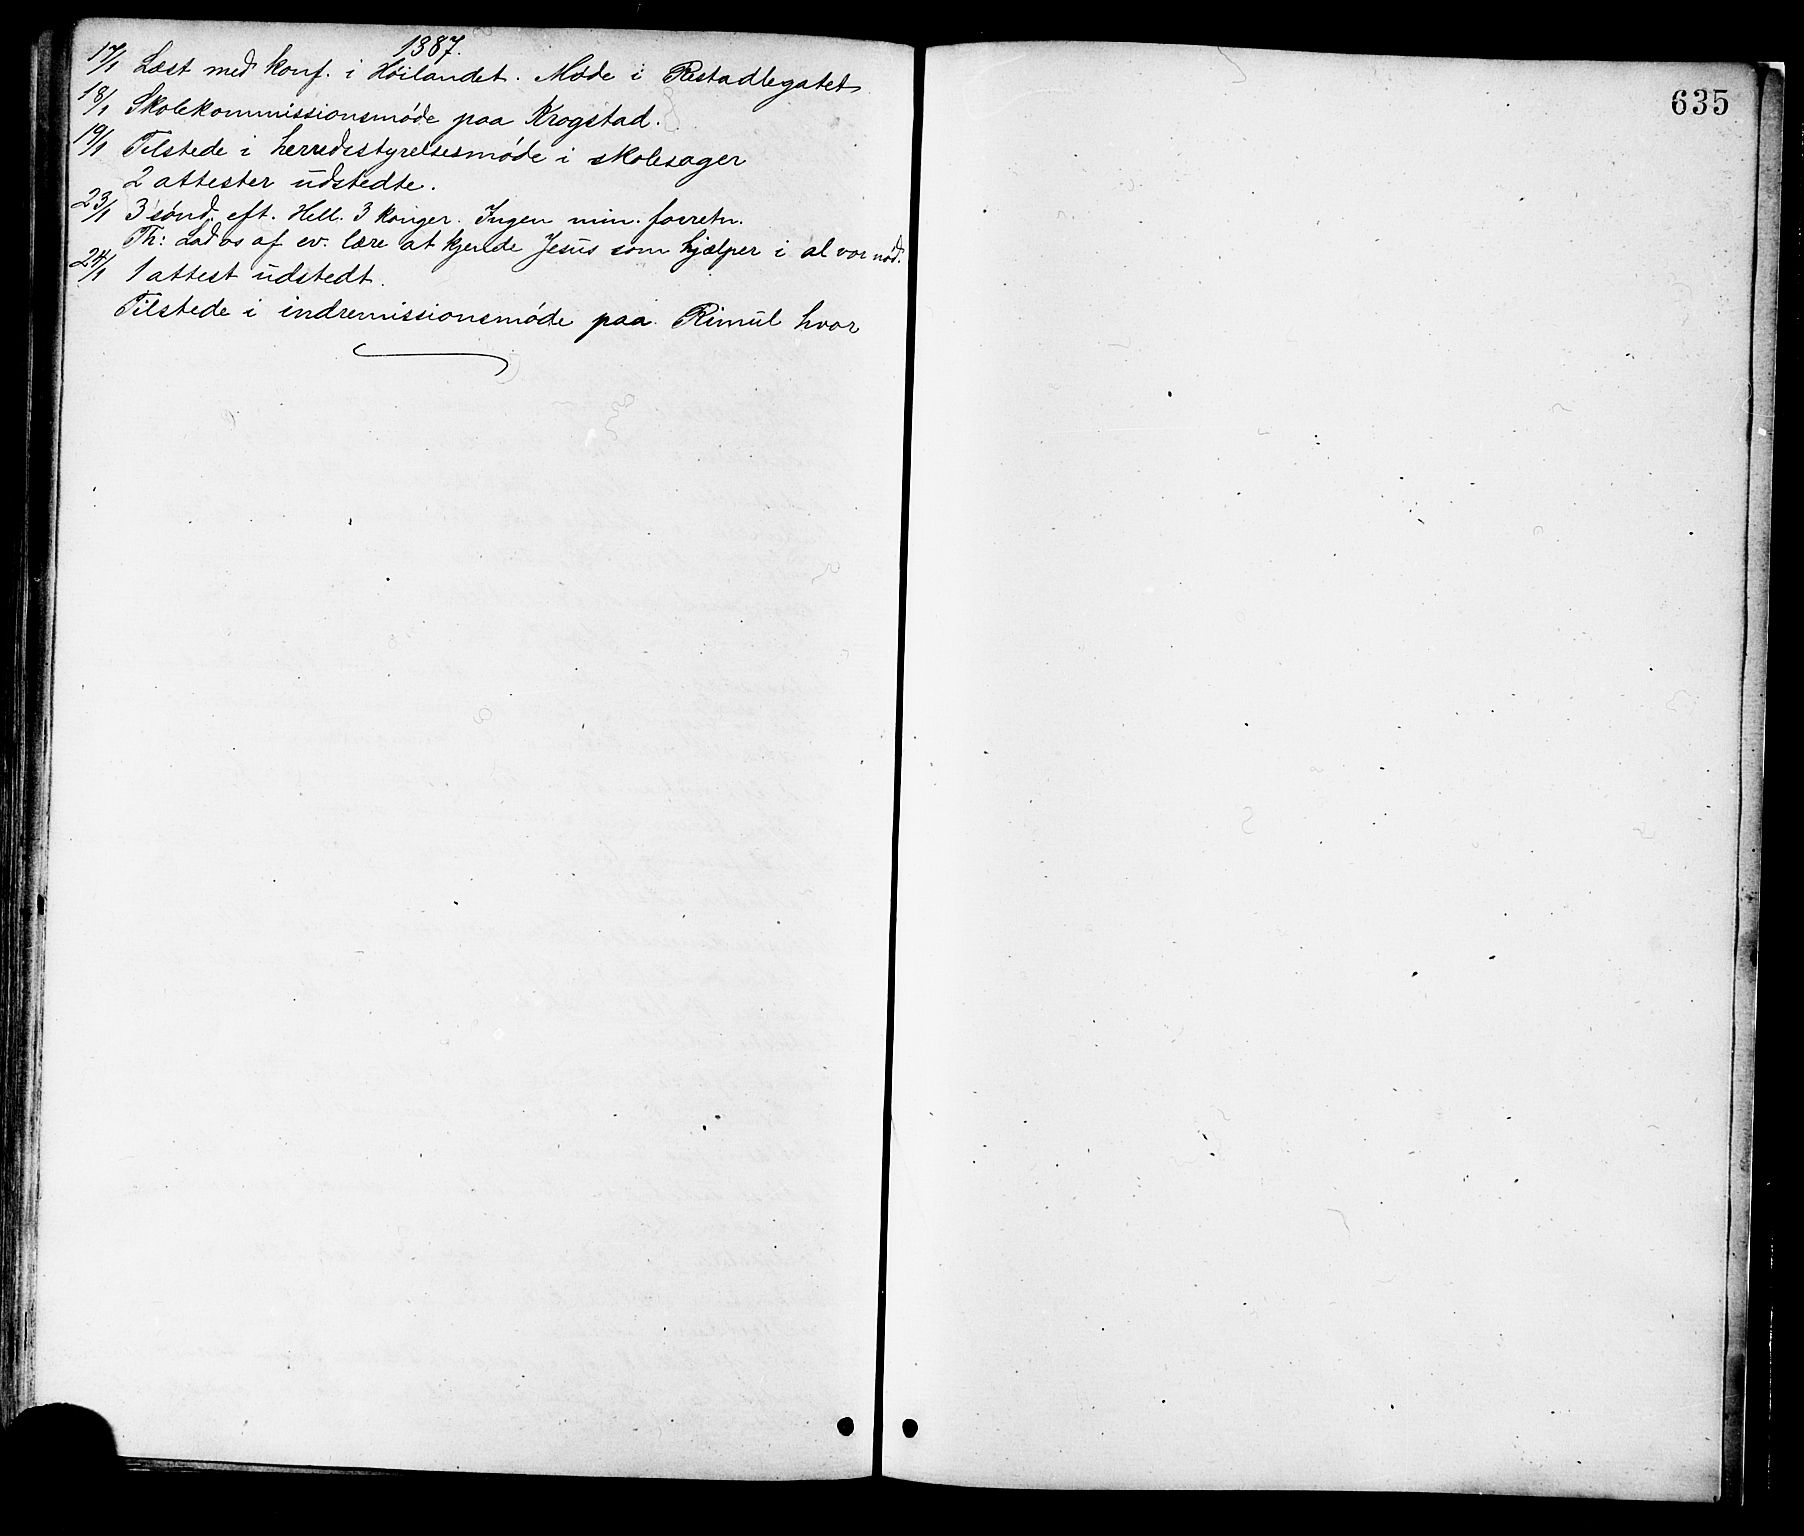 1887.
17/1 Læst med konf. i Høilandet. Møde i Restadlegatet
18/1 Skolekommissionsmøde paa Krogstad.
19/1 Tilstede i herredsstyrelsesmøde i skolesager
2 attester udstedte.
23/1 3 sønd. eft. Hell. 3 konger. Ingen min. forretn.
Th: Lad os af ev. lære at kjende Jesus som hjælper i al vor nød.
24/1 1 attest udstedt.
Tilstede i indremissionsmøde paa Rimul hvor
635